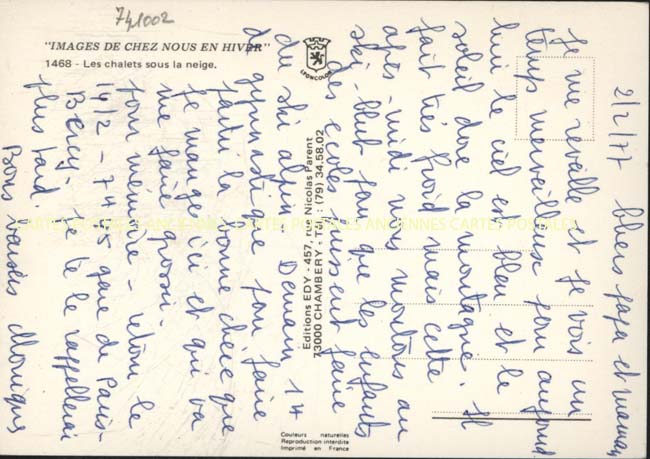 741002
"IMAGES DE CHEZ NOUS EN HIVER"
1468 - Les chalets sous la neige.
LYONCOLOR
Editions EDY - 457, rue Nicolas Parent
73000 CHAMBERY - Tél. : (79) 34.58.02
Couleurs naturelles
Reproduction interdite
Imprimé en France
2/2/77 Chers papa et maman
Je me réveille et je vois un
temps merveilleux pour aujourd
hui le ciel est bleu et le
soleil dore la montagne. Il
fait très froid mais cette
après-midi nous montons au
ski-club pour que les enfants
des écoles puissent faire
du ski alpin. Demain 1H
de gymnastique pour faire
partir la bonne chère que
je mange ici et qui va
me faire grossir.
Pour mémoire - retour le
19/2 - 7H 45 gare de Paris-
Bercy. Je te le rappellerai
plus tard.
Bons baisers Monique
CARTES POSTALES ANCIENNES CARTES POSTALES